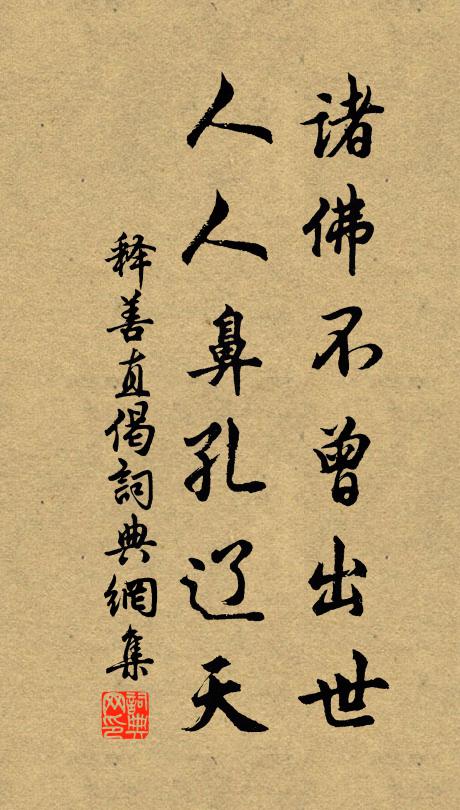 诸佛不曾出世
人人鼻孔辽天
释善直偈詞典網集
詞典網印